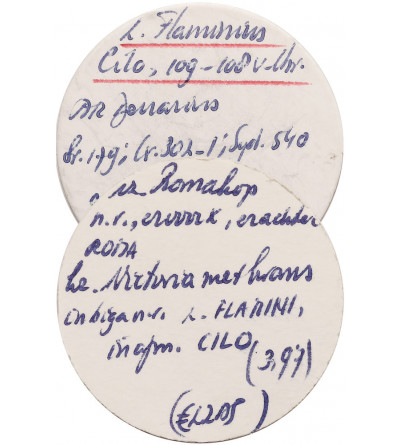 L. Flaminius
Cilo, 109-108 v. Chr.
AR Denarius
Cr. 302-1; Syd. 540
vz. Romakop
n.r., ervoor X, erachter
ROMA
kz. Victoria met krans
in biga n.r. L. FLAMINI,
in afsn. CILO
(3,97)